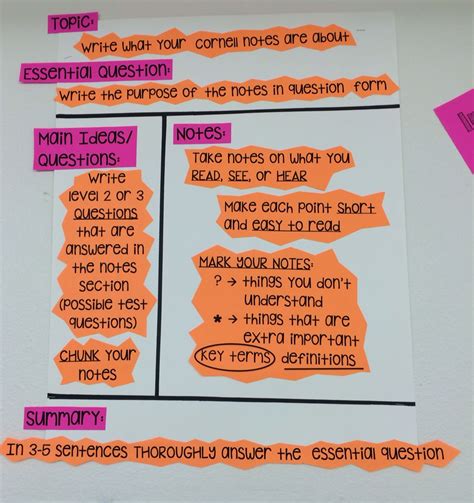 Topic:
Write what your Cornell notes are about
Essential Question:
Write the purpose of the notes in question form
Main Ideas/
Questions:
Write
level 2 or 3
Questions
that are
answered in
the notes
section
(possible test
questions)
CHUNK your
notes
Notes:
Take notes on what you
READ, SEE, or HEAR
Make each point short
and easy to read
MARK YOUR NOTES:
? → things you don't
understand
* → things that are
extra important
key terms definitions
Summary:
In 3-5 sentences THOROUGHLY answer the essential question